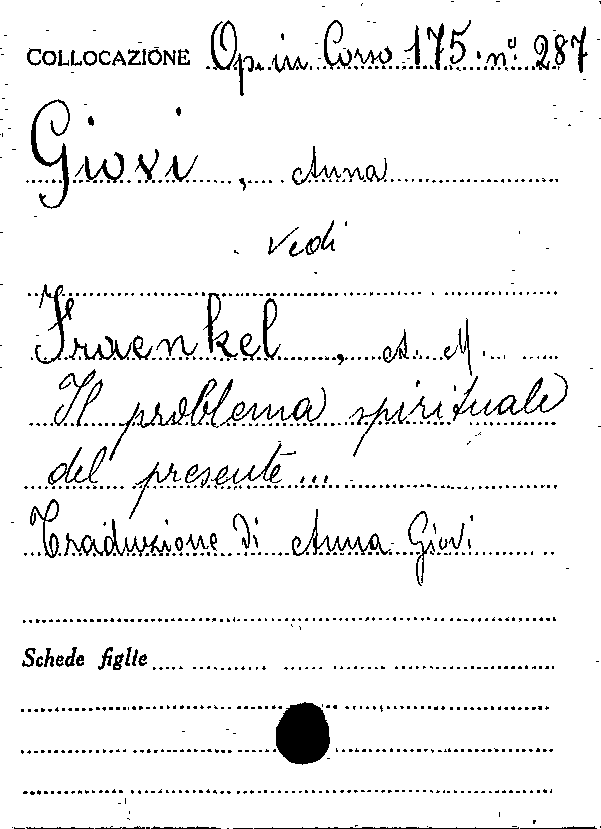 COLLOCAZIONE Op. in Corso 175. n° 287
Giovi, Anna
Vedi
Fraenkel, A. M.
Il problema spirituale
del presente...
Traduzione di Anna Giovi
Schede figlie